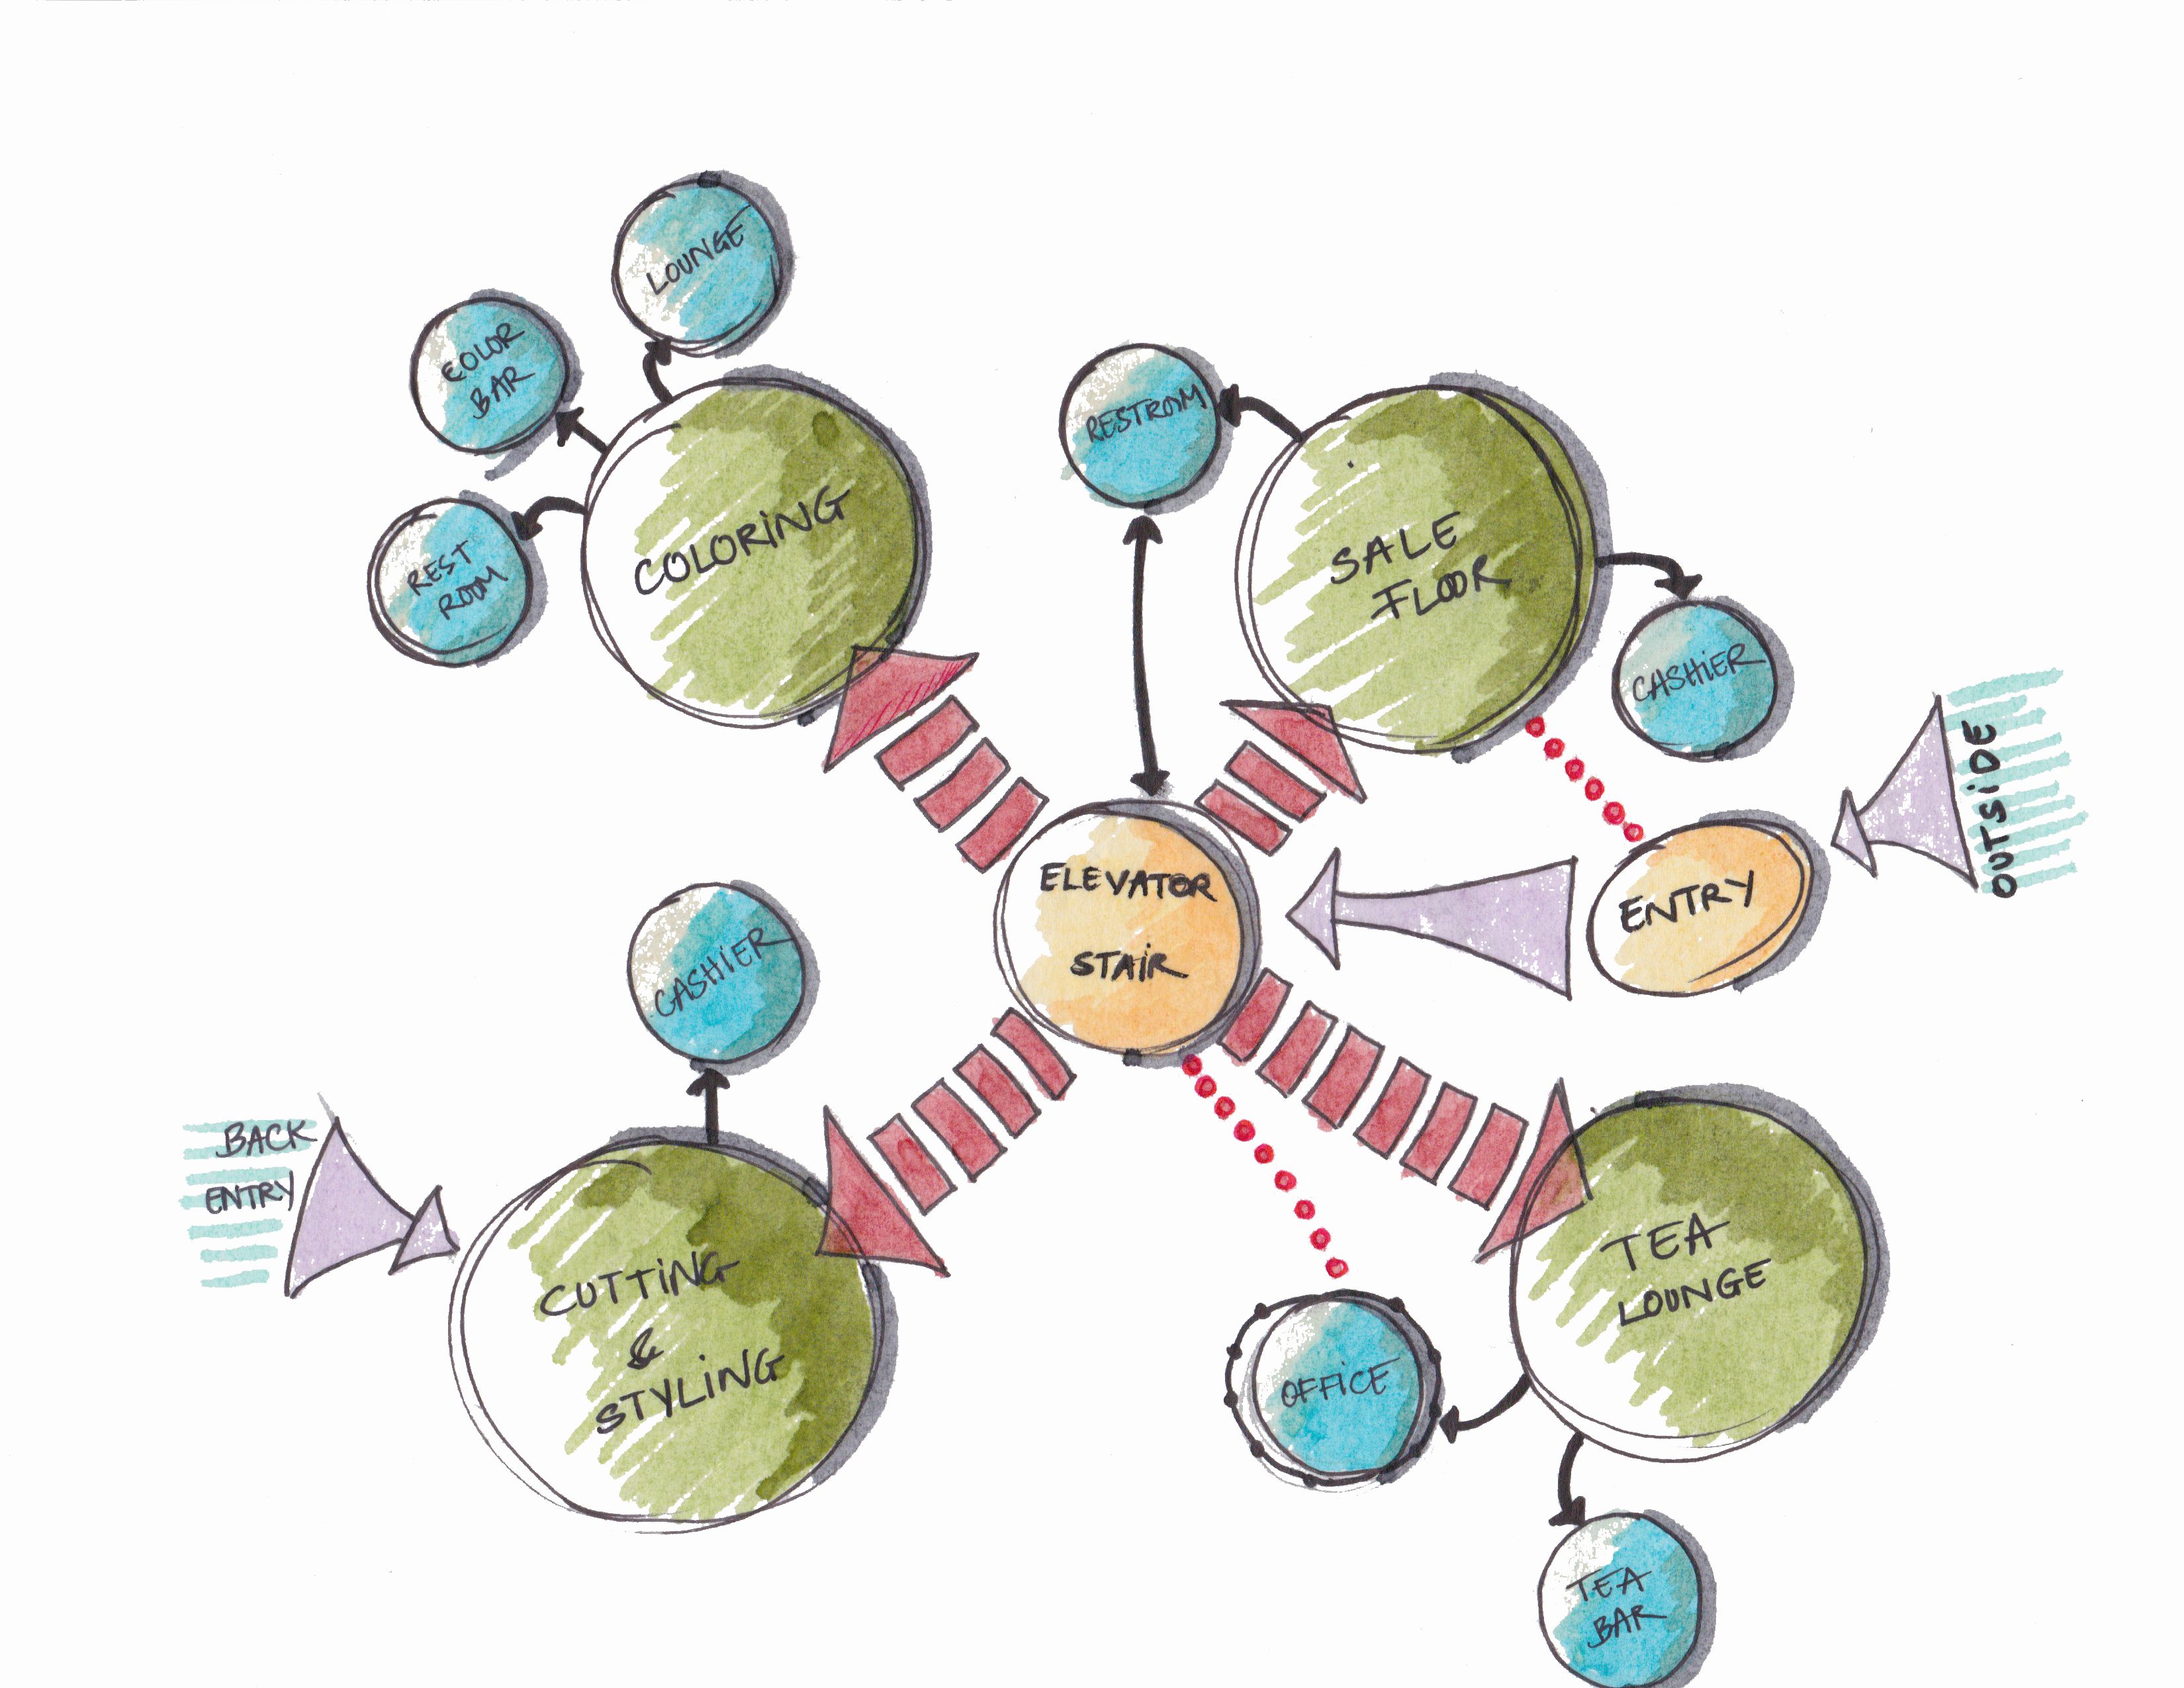 LOUNGE
COLOR
BAR
REST
ROOM
COLORING
RESTROOM
SALE
FLOOR
CASHIER
OUTSIDE
ENTRY
ELEVATOR
STAIR
CASHIER
BACK
ENTRY
CUTTING
&
STYLING
TEA
LOUNGE
OFFICE
TEA
BAR